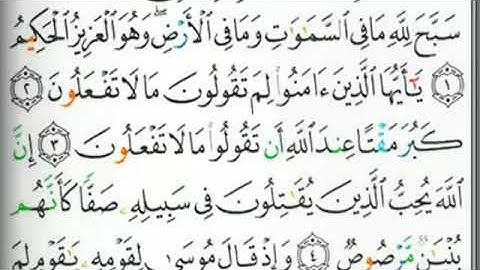 سَبَّحَ لِلَّهِ مَا فِي السَّمَٰوَٰتِ وَمَا فِي الْأَرْضِ ۖ وَهُوَ الْعَزِيزُ الْحَكِيمُ
١ يَٰٓأَيُّهَا الَّذِينَ ءَامَنُوا لِمَ تَقُولُونَ مَا لَا تَفْعَلُونَ ٢
كَبُرَ مَقْتًا عِندَ اللَّهِ أَن تَقُولُوا مَا لَا تَفْعَلُونَ ٣ إِنَّ
اللَّهَ يُحِبُّ الَّذِينَ يُقَٰتِلُونَ فِي سَبِيلِهِۦ صَفًّا كَأَنَّهُم
بُنْيَٰنٌ مَّرْصُوصٌ ٤ وَإِذْ قَالَ مُوسَىٰ لِقَوْمِهِۦ يَٰقَوْمِ لِمَ